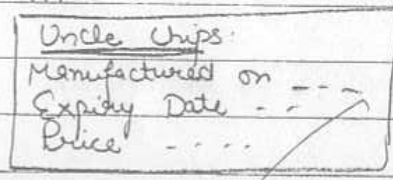 Uncle Chips
Manufactured on ----
Expiry Date - -
Price - - - -